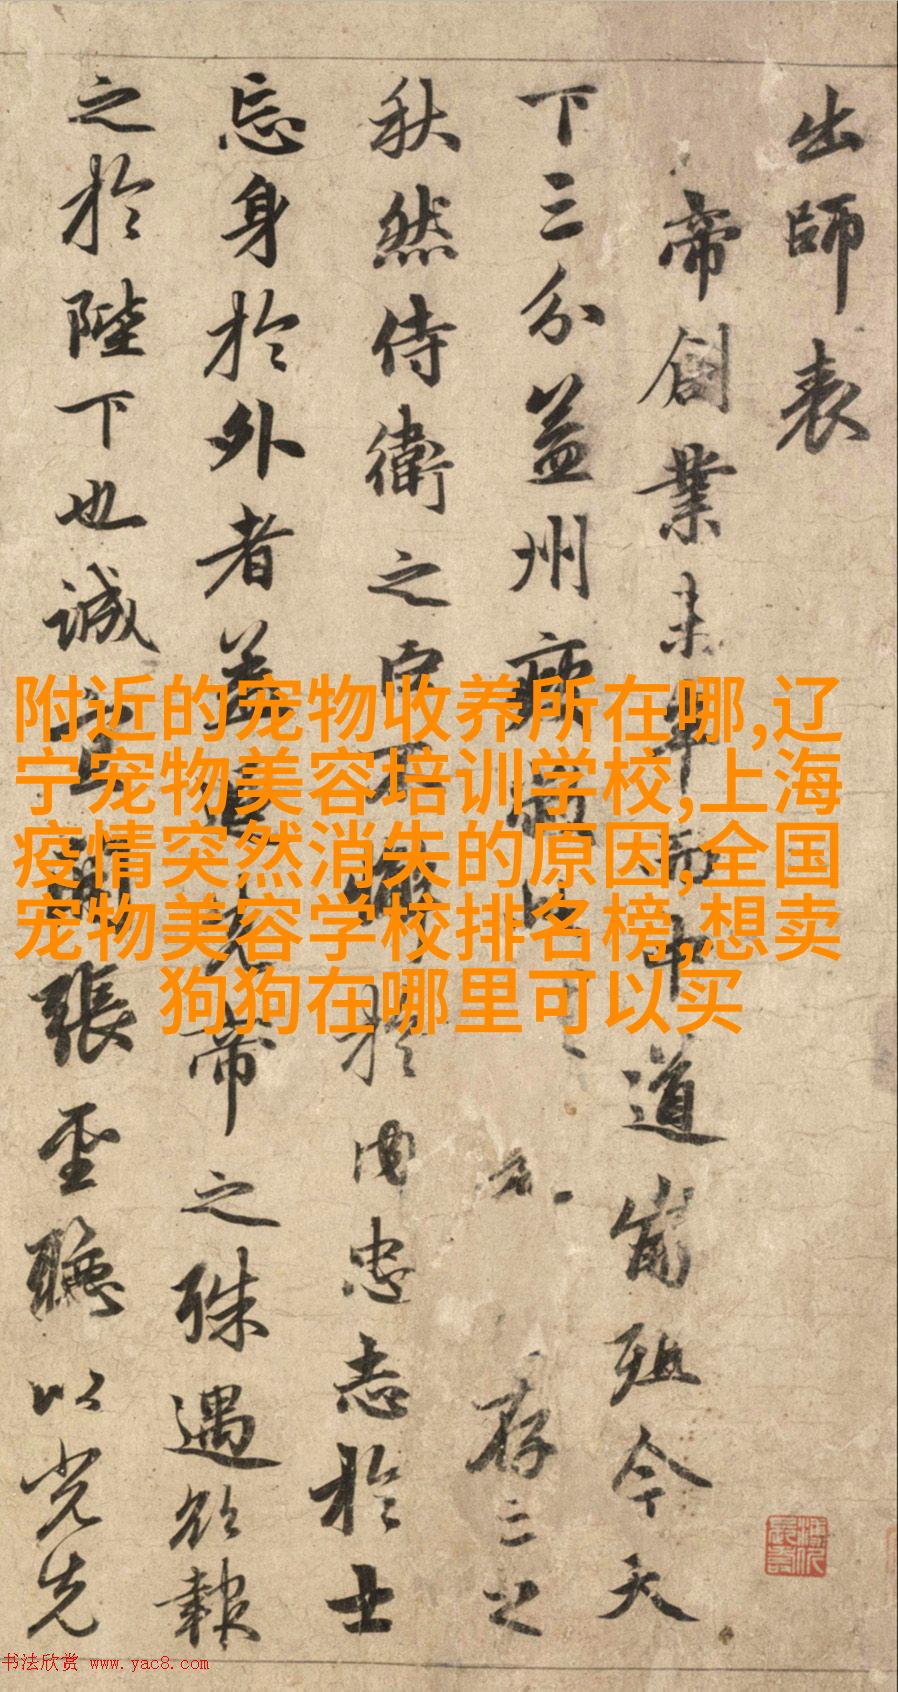 出師表
帝創業未半而中道崩殂今天
下三分益州疲弊此存亡之
秋然侍衛之臣不懈於内忠志於士
忘身於外者蓋追先帝之殊遇欲報
之於陛下也誠宜開張聖聽以光先
附近的宠物收养所在哪,辽
宁宠物美容培训学校,上海
疫情突然消失的原因,全国
宠物美容学校排名榜,想卖
狗狗在哪里可以买
书法欣赏 www.yac8.com